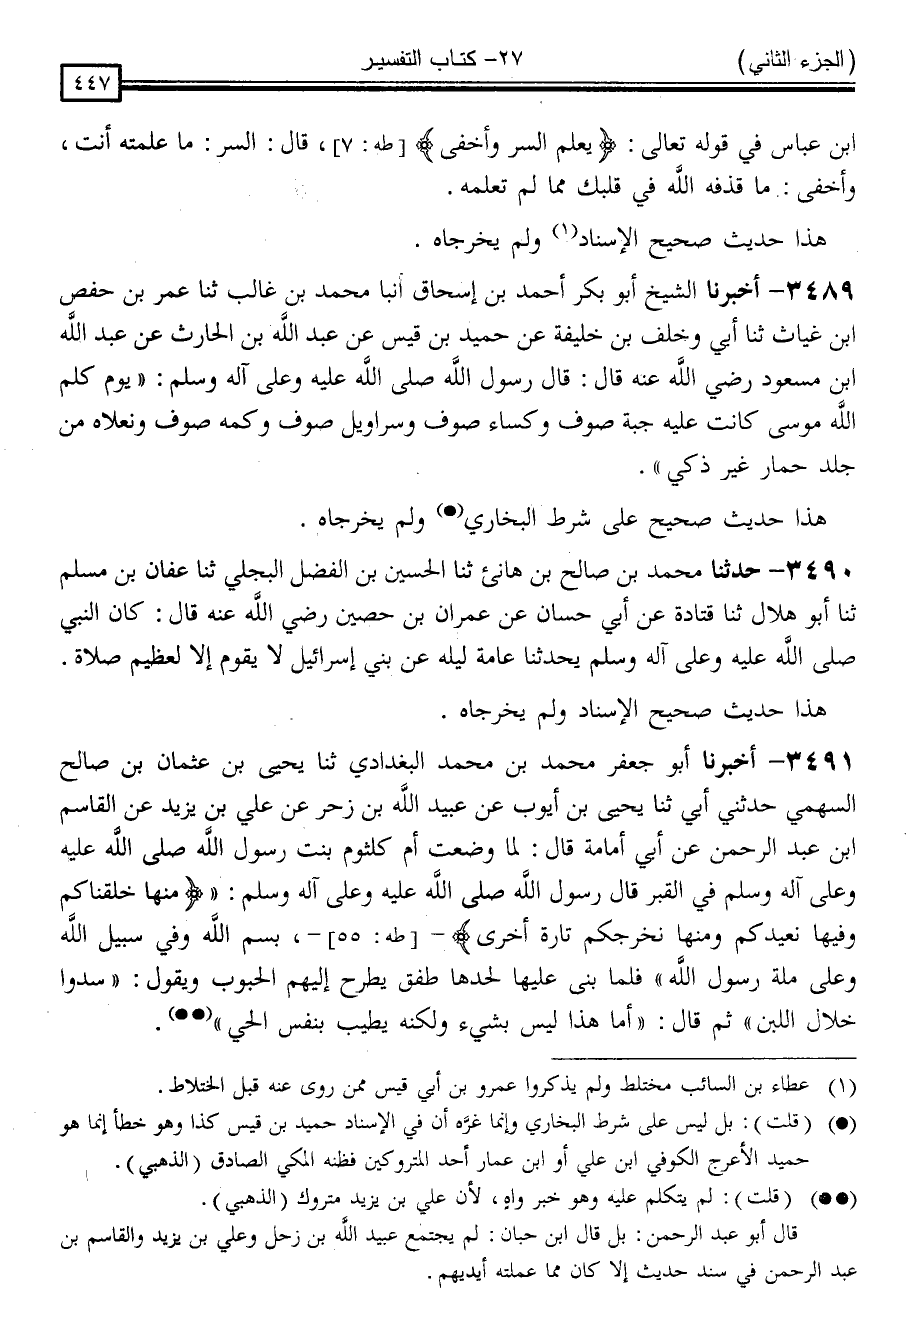 (الجزء الثاني) ٢٧- كتاب التفسير ٤٤٧
ابن عباس في قوله تعالى : ﴿يعلم السر وأخفى﴾ [طه: ٧]، قال: السر: ما علمته أنت،
وأخفى: ما قذفه اللَّه في قلبك مما لم تعلمه .
هذا حديث صحيح الإسناد(١) ولم يخرجاه .
٣٤٨٩- أخبرنا الشيخ أبو بكر أحمد بن إسحاق أنبا محمد بن غالب ثنا عمر بن حفص
ابن غياث ثنا أبي وخلف بن خليفة عن حميد بن قيس عن عبد اللَّه بن الحارث عن عبد اللَّه
ابن مسعود رضي اللَّه عنه قال: قال رسول اللَّه صلى اللَّه عليه وعلى آله وسلم: «يوم كلم
اللَّه موسى كانت عليه جبة صوف وكساء صوف وسراويل صوف وكمه صوف ونعلاه من
جلد حمار غير ذكي» .
هذا حديث صحيح على شرط البخاري(●) ولم يخرجاه .
٣٤٩٠- حدثنا محمد بن صالح بن هانئ ثنا الحسين بن الفضل البجلي ثنا عفان بن مسلم
ثنا أبو هلال ثنا قتادة عن أبي حسان عن عمران بن حصين رضي اللَّه عنه قال: كان النبي
صلى اللَّه عليه وعلى آله وسلم يحدثنا عامة ليله عن بني إسرائيل لا يقوم إلا لعظيم صلاة .
هذا حديث صحيح الإسناد ولم يخرجاه .
٣٤٩١- أخبرنا أبو جعفر محمد بن محمد البغدادي ثنا يحيى بن عثمان بن صالح
السهمي حدثني أبي ثنا يحيى بن أيوب عن عبيد اللَّه بن زحر عن علي بن يزيد عن القاسم
ابن عبد الرحمن عن أبي أمامة قال: لما وضعت أم كلثوم بنت رسول اللَّه صلى اللَّه عليه
وعلى آله وسلم في القبر قال رسول اللَّه صلى اللَّه عليه وعلى آله وسلم: «﴿منها خلقناكم
وفيها نعيدكم ومنها نخرجكم تارة أخرى﴾ - [طه: ٥٥]-، بسم اللَّه وفي سبيل اللَّه
وعلى ملة رسول اللَّه» فلما بنى عليها لحدها طفق يطرح إليهم الجبوب ويقول: «سدوا
خلال اللبن» ثم قال: «أما هذا ليس بشيء ولكنه يطيب بنفس الحي»(●●) .
(١) عطاء بن السائب مختلط ولم يذكروا عمرو بن أبي قيس ممن روى عنه قبل الختلاط .
(●) (قلت): بل ليس على شرط البخاري وإنما غرَّه أن في الإسناد حميد بن قيس كذا وهو خطأ إنما هو
حميد الأعرج الكوفي ابن علي أو ابن عمار أحد المتروكين فظنه المكي الصادق (الذهبي) .
(●●) (قلت): لم يتكلم عليه وهو خبر واهٍ، لأن علي بن يزيد متروك (الذهبي) .
قال أبو عبد الرحمن: بل قال ابن حبان: لم يجتمع عبيد اللَّه بن زحل وعلي بن يزيد والقاسم بن
عبد الرحمن في سند حديث إلا كان مما عملته أيديهم .